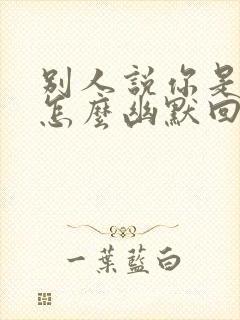 别人説你是
怎麼幽默回
一葉藍白